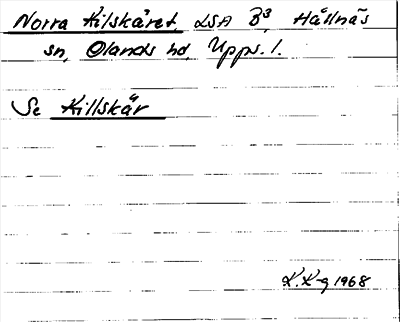 Norra Kilskäret, LSA B³, Hållnäs
sn, Olands hd, Upps. l.
Se Killskär
K.K-g 1968